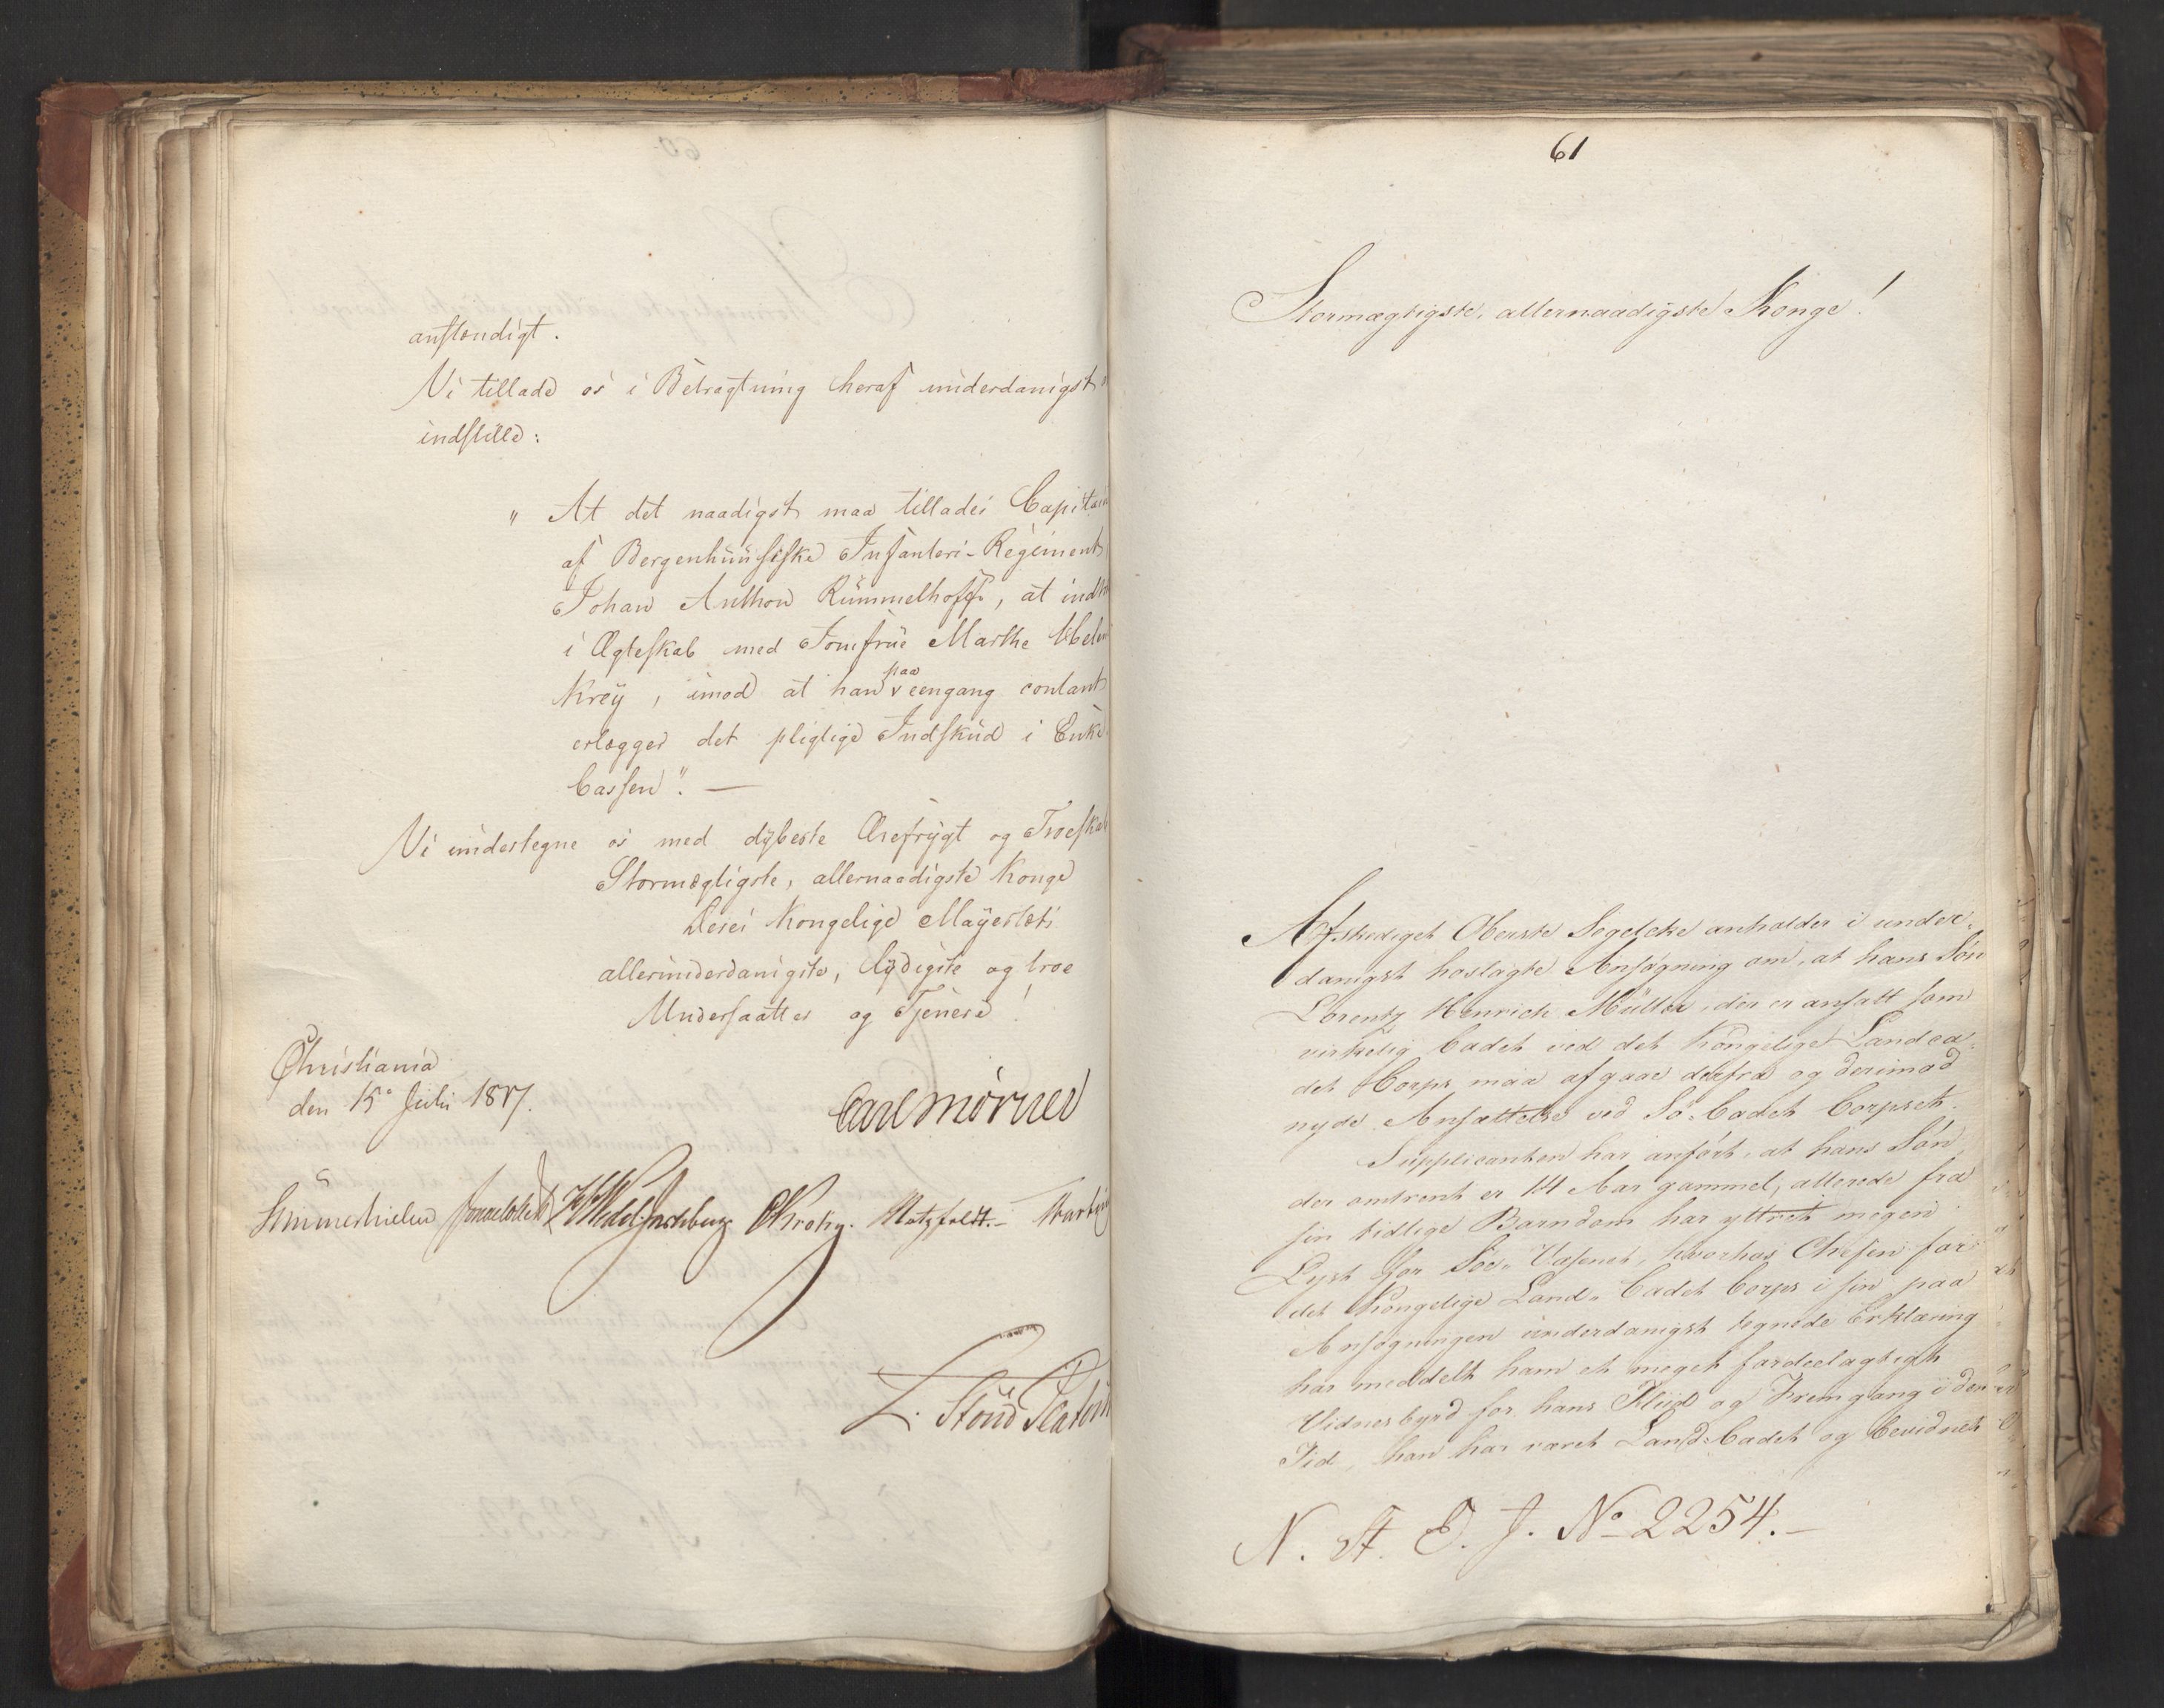 anstændigt.
Vi tillade os i Betragtning heraf underdanigst
indstille:
„ At det naadigst maa tillades Capitain
af Bergenhuusiske Infanteri-Regiment
Johan Anthon Rummelhoff, at indtr
i Ægteskab med Jomfrue Marthe Abel
Krey, imod at han paa eengang contant
erlægger det pligtige Indskud i Enke
Cassen". —
Vi undertegne os med dybeste Ærefrygt og Troeskab
Stormægtigste, allernaadigste Konge
Deres Kongelige Mayestæts
allerunderdanigste, lydigste og troe
Undersaatter og Tjenere!
Christiania
den 15de Juli 1817.
Carl Mörner
Sommerhielm Wedel Jarlsberg CKrohg. Motzfeldt.-
L. Stoud Platou
61
Stormægtigste, allernaadigste Konge!
Afskediget Oberste Segelcke anholder i under-
danigst hoslagte Ansøgning om, at hans Søn
Lorentz Henrich Müller, der er ansatt som
virkelig Cadet ved det Kongelige Landca-
det Corps, maa afgaae derfra og derimod
nyde Ansættelse ved Sö-Cadet Corpset.
Supplicanten har anført, at hans Søn,
der omtrent er 14 Aar gammel, allerede fra
sin tidlige Barndom har yttret megen
Lyst for Söe-Væsenet, hvorhos Chefen for
det Kongelige Land-Cadet Corps i sin paa
Ansøgningen underdanigst tegnede Erklæring
har meddelt ham et meget fordeelagtigt
Vidnesbyrd for hans Fliid og Fremgang i den
Tid, han har været Land-Cadet og bevidnet
N. A. E. J. No 2254.-